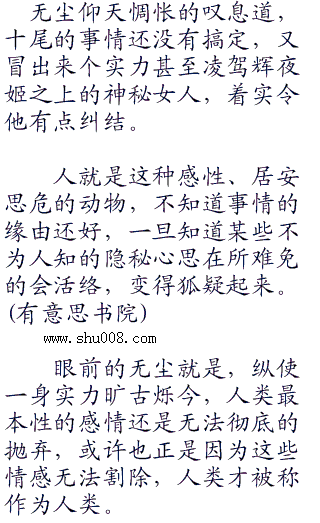 无尘仰天惆怅的叹息道，
十尾的事情还没有搞定，又
冒出来个实力甚至凌驾辉夜
姬之上的神秘女人，着实令
他有点纠结。
人就是这种感性、居安
思危的动物，不知道事情的
缘由还好，一旦知道某些不
为人知的隐秘心思在所难免
的会活络，变得狐疑起来。
(有意思书院)
www.shu008.com
眼前的无尘就是，纵使
一身实力旷古烁今，人类最
本性的感情还是无法彻底的
抛弃，或许也正是因为这些
情感无法割除，人类才被称
作为人类。